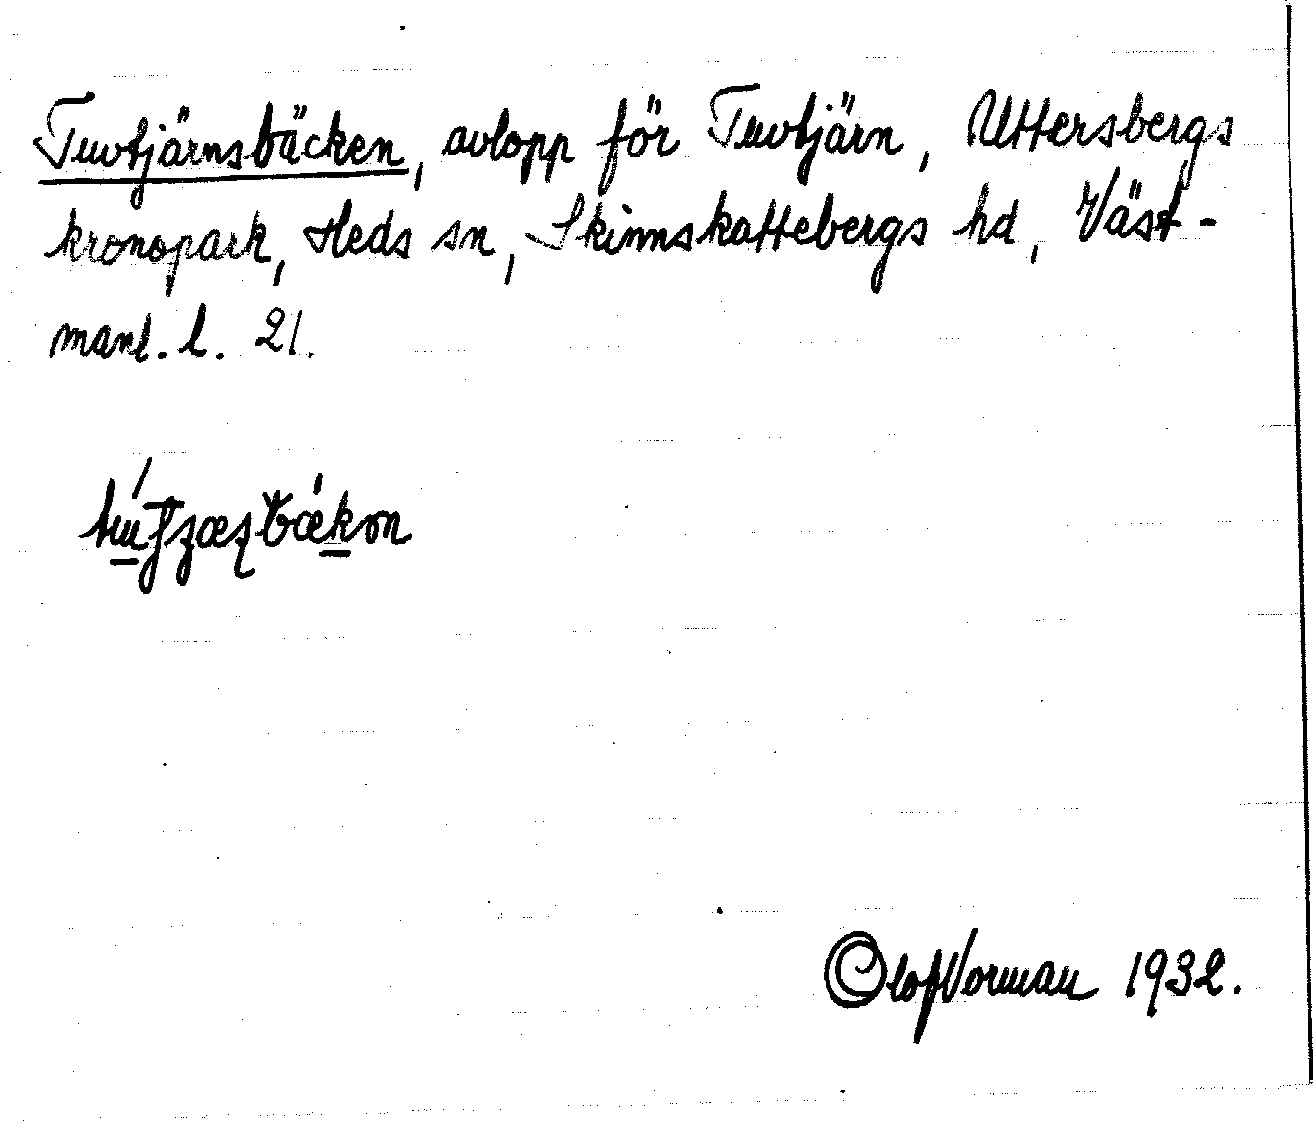 Tuvtjärnsbäcken, avlopp för Tuvtjärn, Uttersbergs
kronopark, Heds sn, Skinnskattebergs hd, Väst-
manl. l. 21.
Olof Vorman 1932.